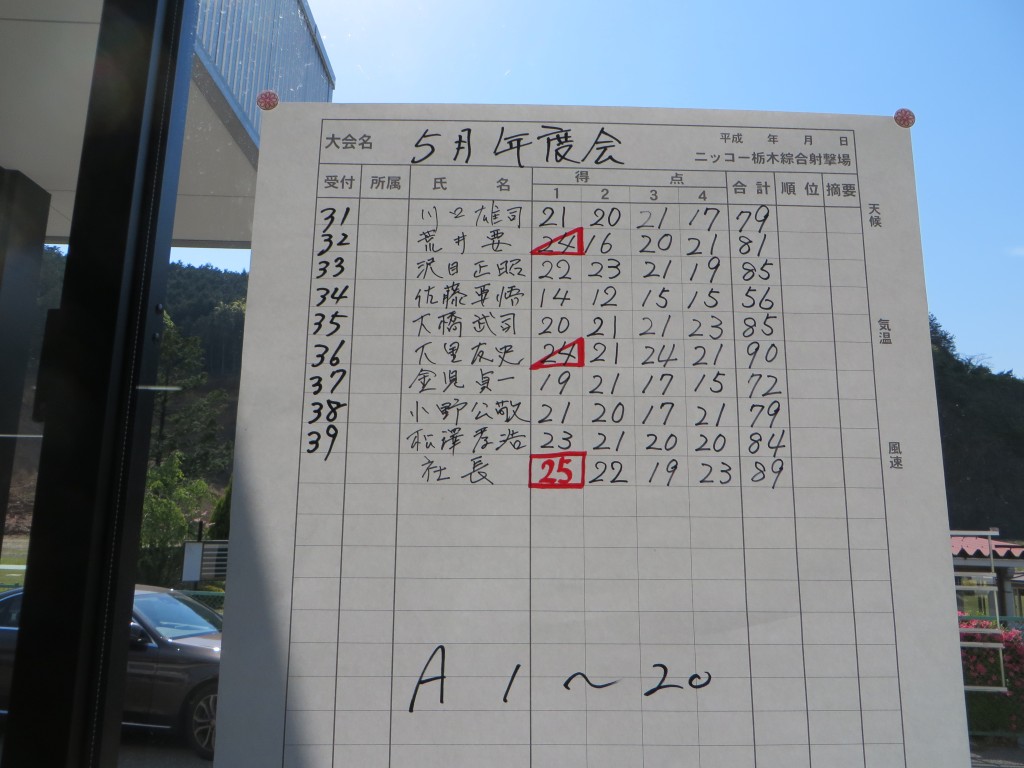 大会名 5月年度会 平成 年 月 日
ニッコー栃木綜合射撃場
受付 所属 氏 名 得 点 合計 順位 摘要
1 2 3 4
31 川口雄司 21 20 21 17 79
32 荒井要 24 16 20 21 81
33 沢目正昭 22 23 21 19 85
34 佐藤要悟 14 12 15 15 56
35 大橋武司 20 21 21 23 85
36 大里友史 24 21 24 21 90
37 金児貞一 19 21 17 15 72
38 小野公敬 21 20 17 21 79
39 松澤孝浩 23 21 20 20 84
社長 25 22 19 23 89
天候
気温
風速
A 1～20